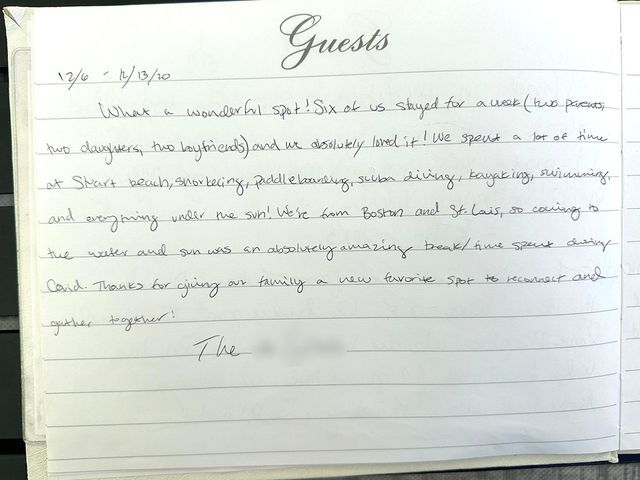 Guests
12/6 - 12/13/20
What a wonderful spot! Six of us stayed for a week (two parents,
two daughters, two boyfriends) and we absolutely loved it! We spent a lot of time
at Smart beach, snorkeling, paddleboarding, scuba diving, kayaking, swimming,
and everything under the sun! We're from Boston and St. Louis, so coming to
the water and sun was an absolutely amazing break/time spent during
Covid. Thanks for giving our family a new favorite spot to reconnect and
gather together!
The